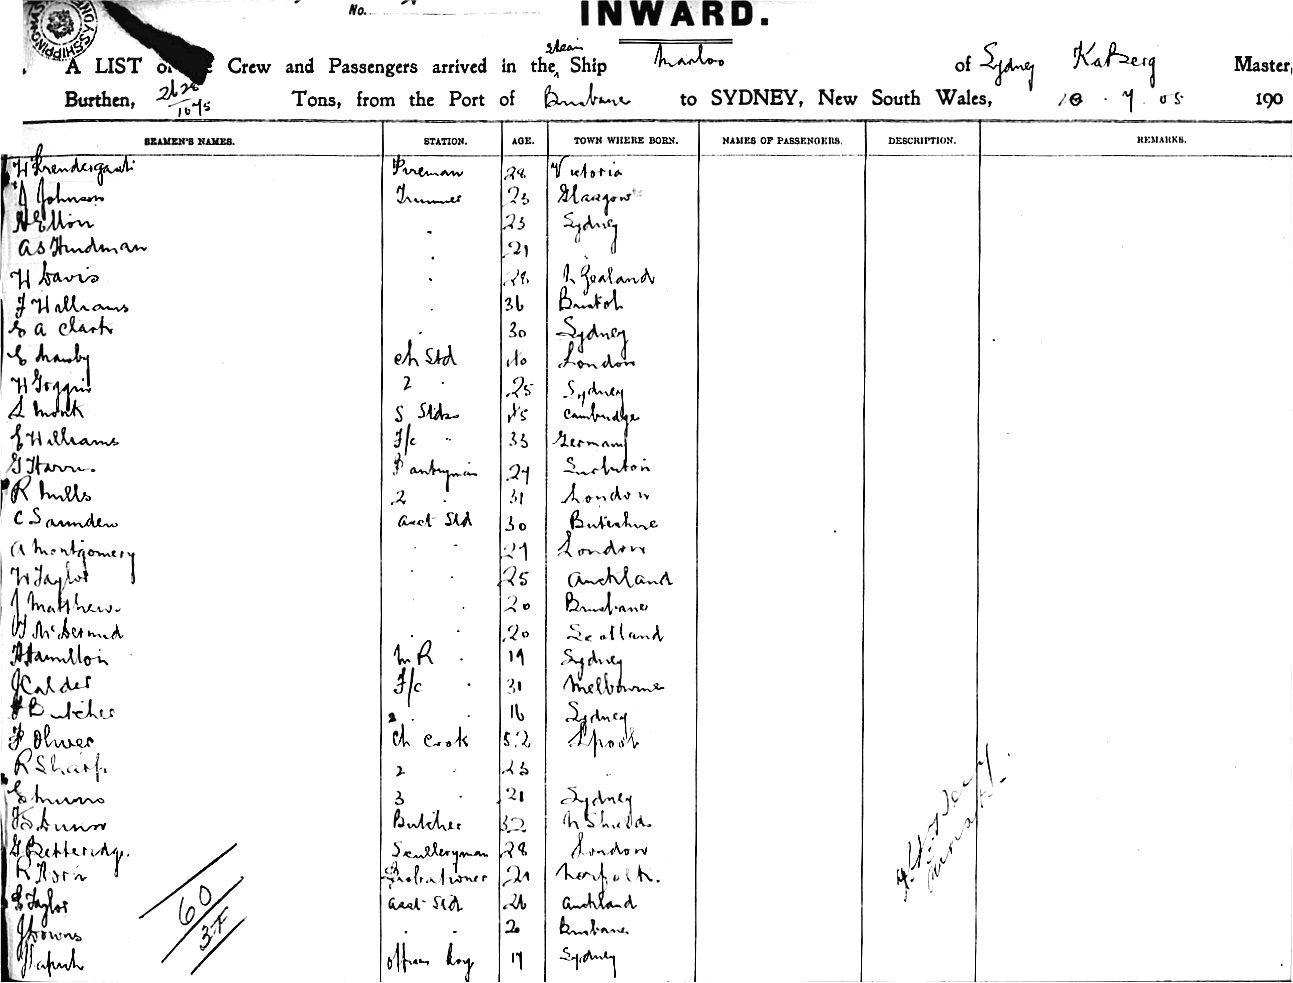 No.
INWARD.
A LIST of Crew and Passengers arrived in the Steam Ship Marloo of Sydney Master,
Burthen, 2628/1675 Tons, from the Port of Brisbane to SYDNEY, New South Wales, 10.7.05 190
SEAMEN'S NAMES. STATION. AGE. TOWN WHERE BORN. NAMES OF PASSENGERS. DESCRIPTION. REMARKS.
W Prendergast Fireman 28 Victoria
J Johnson Trimmer 23 Glasgow
Elton . 23 Sydney
A S Hindman . 21 .
W Davis . 28 N Zealand
F Williams . 36 Bristol
E A Clark . 30 Sydney
E Mawby Ch Std 40 London
W Goggin 2 . 25 Sydney
S Monk S Stdss 45 Cambridge
E Williams F/c " 33 Germany
G Harris Pantryman 27 Surbiton
R Mills 2 . 31 London
C Saunders Asst Std 30 Buteshire
A Montgomery . . 27 London
W Taylor . . 25 Auckland
J Matthews . . 20 Brisbane
McDermid . . 20 Scotland
H Hamilton M R . 19 Sydney
J Calder F/c . 31 Melbourne
Butcher 2 . 16 Sydney
F Oliver Ch Cook 52 Lpool
R Sharp 2 . 23 ..
E Munro 3 . 21 Sydney
Dunn Butcher 32 N Shields
G Betteridge. Sculleryman 28 London
R Probationer 21 Norfolk.
Taylor Asst Std 26 Auckland
J Downs . . 20 Brisbane
Officers Boy 17 Sydney
60
37